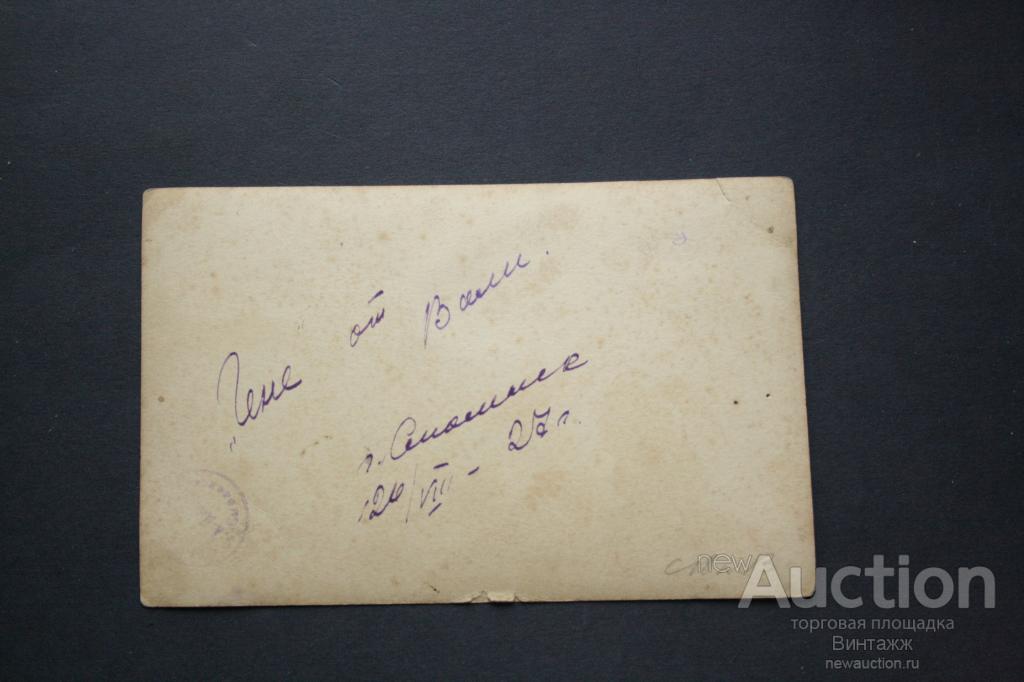 „Гене от Вали.
г. Смоленск
26/VIII - 27 г.
newAuction
торговая площадка
Винтажж
newauction.ru